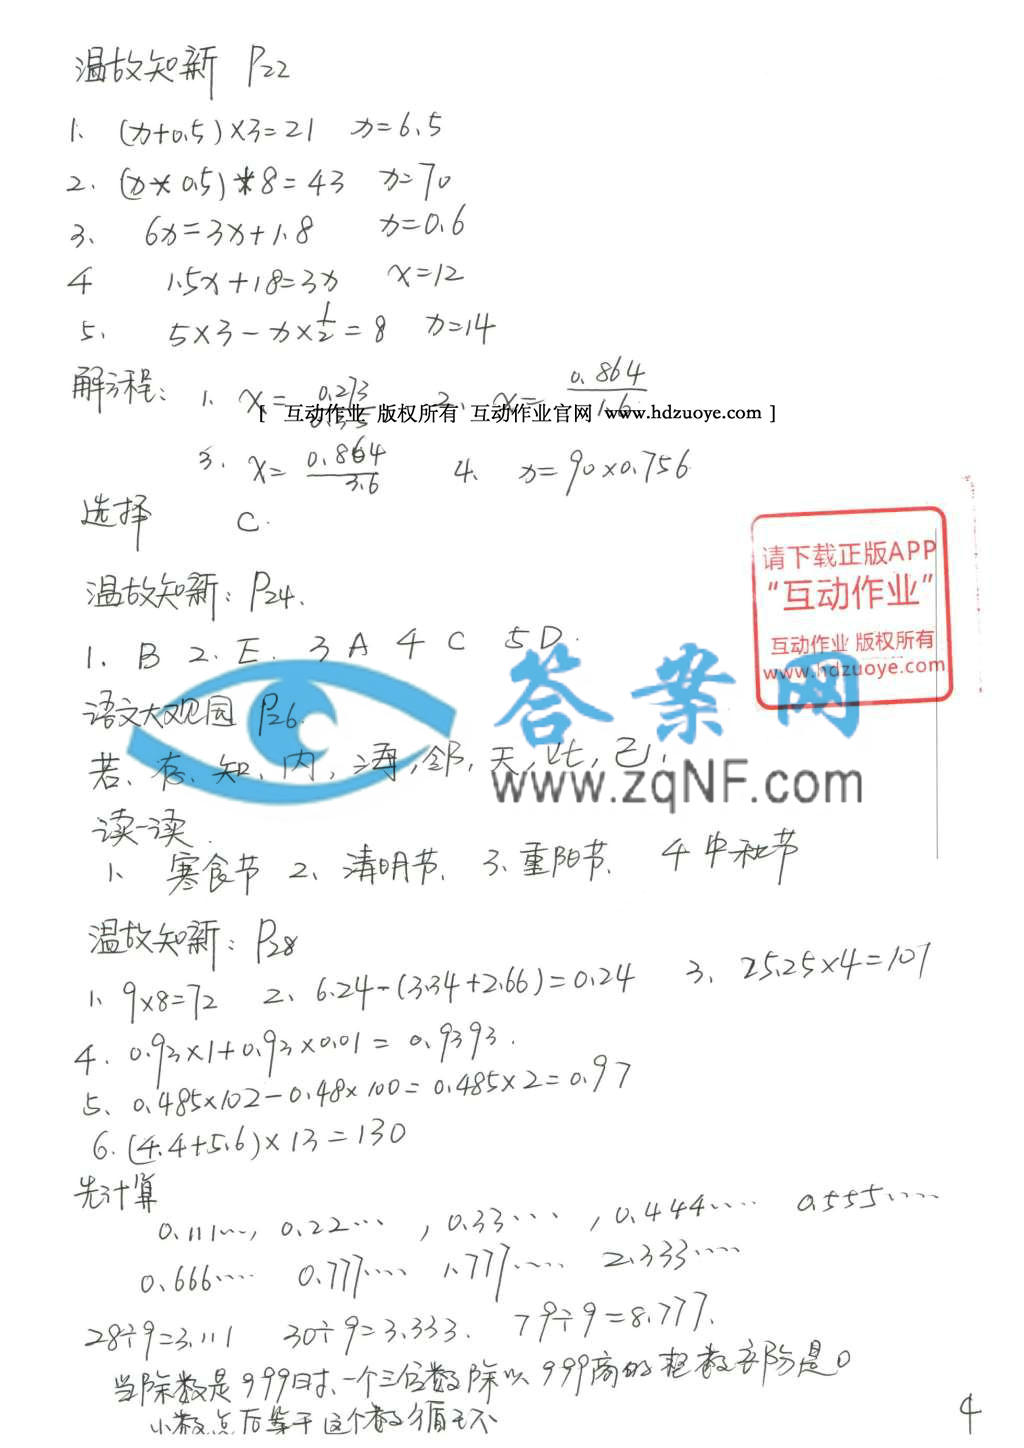 温故知新 P22
1. (x+0.5)×3=21 x=6.5
2. 8=43 x=70
3. 6x=3x+1.8 x=0.6
4 1.5x+18=3x x=12
5. 5×3-x×1/2=8 x=14
解方程: 1. x=0.273/0.35 2. x=0.864/1.6
[ 互动作业 版权所有 互动作业官网 www.hdzuoye.com ]
3. x=0.864/3.6 4. x=90×0.756
选择 C.
请下载正版APP
“互动作业”
互动作业 版权所有
www.hdzuoye.com
温故知新: P24.
1. B 2. E. 3 A 4 C 5 D.
答案网
www.zqNF.com
语文大观园 P26.
若、存、知、内,海,邻,天,比,己,
读一读.
1、寒食节 2、清明节. 3、重阳节. 4 中秋节
温故知新: P28
1、9×8=72 2、6.24-(3.34+2.66)=0.24 3、25.25×4=101
4. 0.93×1+0.93×0.01=0.9393.
5、0.485×102-0.48×100=0.485×2=0.97
6.(4.4+5.6)×13=130
先计算
0.111…, 0.22… ,0.33… ,0.444…… 0.555……
0.666…… 0.777…… 1.777…… 2.333……
28÷9=3.111 30÷9=3.333. 79÷9=8.777.
当除数是999时、一个三位数除以999商的整数部分是0
小数点后等于这个数循
4